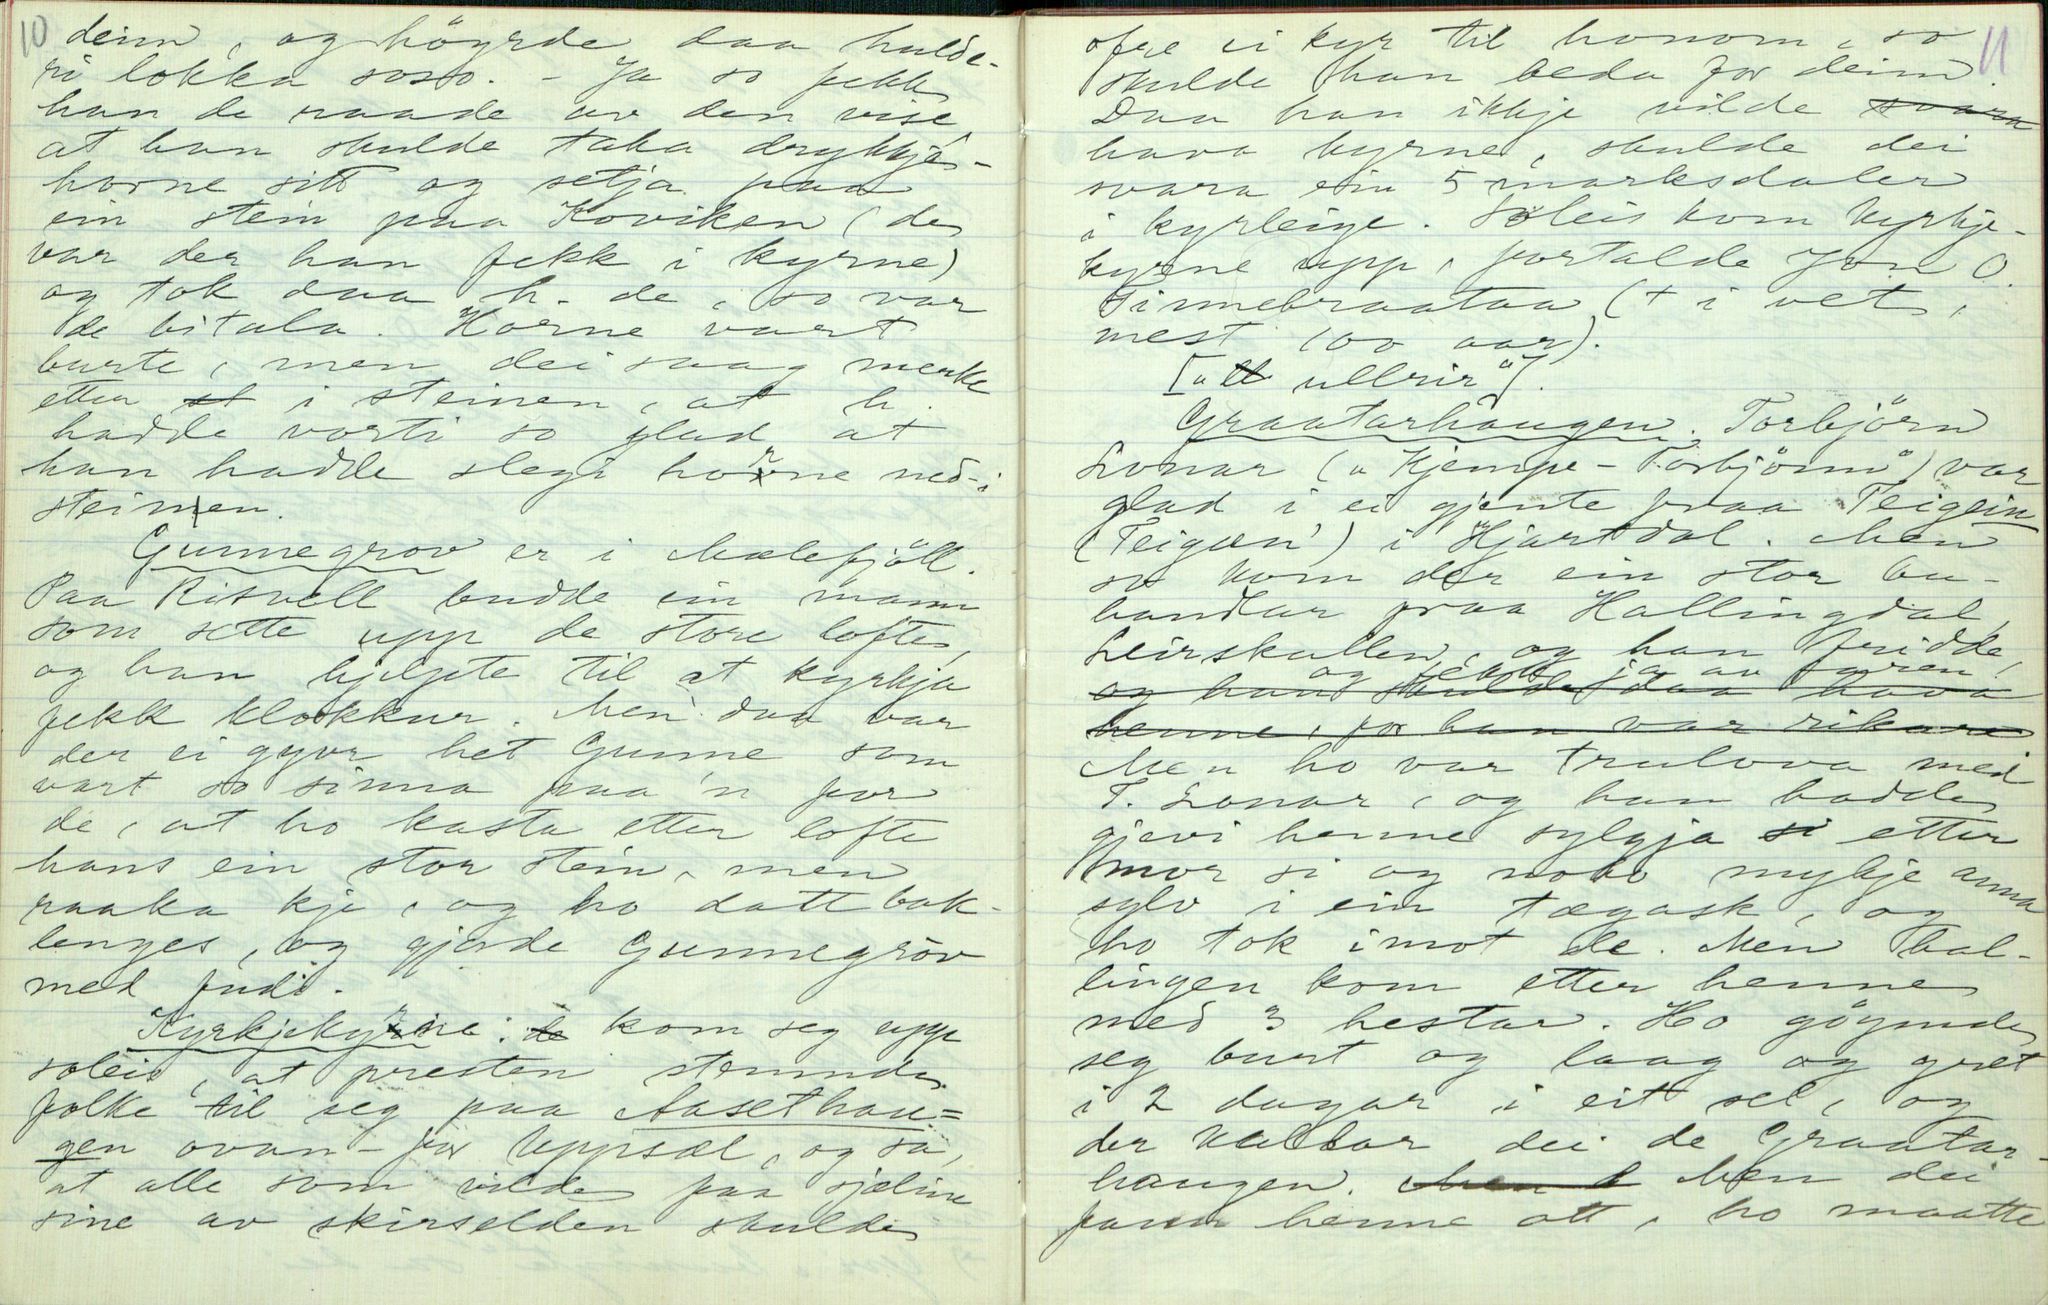 10
deim, og höyrde daa hulde-
ri lokka soso. - Ja so fekk
han de raade av den vise
at han skulde taka drykkje-
horne sitt og setja paa
ein stein paa Koviken (de
var der han fekk i kyrne)
og tok daa h. de, so var
de bitala. Horne vart
burte, men dei saag merke
etter st i steinen, at h.
hadde vorti so glad at
han hadde slegi horne ned-i
steinen.
Gunnegrov er i Mælefjöll.
Paa Risvoll budde ein mann
som sette upp de store lofte,
og han hjelpte til at kyrkja
fekk klokkur. Men daa var
der ei gyvr het Gunne som
vart so sinna paa 'n for
de, at ho kasta etter lofte
hans ein stor stein, men
raaka kje, og ho datt bak-
lenges, og gjorde Gunnegrov
med fudi.
Kyrkjekyrne: de kom seg upp
soleis, at presten stemnde
folke til seg paa Aasethau=
gen ovan-for Uppsal, og sa,
at alle som vilde faa sjæline
sine av skirselden skulde
11
ofre ei kyr til honom, so
skulde han beda for deim.
Daa han ikkje vilde svara
hava kyrne, skulde dei
svara ein 5 marksdaler
i kyrleige. Soleis kom kyrkje-
kyrne upp, fortalde Jon O.
Tinnebraataa (+ i vet,
mest 100 aar).
["tt ullrir"].
Graatarhaugen. Torbjörn
Lonar ("Kjempe-Torbjönn") var
glad i ei gjente fraa Teigein
(Teigæn') i Hjartdal. Men
so kom der ein stor bu-
handlar fraa Hallingdal,
Leirskallen, og han fridde,
og fekk ja av faren,
og han skulde daa hava
henne, for han var rikare
Men ho var trulova med
T. Lonar, og han hadde
gjevi henne sylgja si etter
mor si og noko mykje anna
sylv i ein tægask, og
ho tok imot de. Men hal-
lingen kom etter henne
med 3 hestar. Ho göymde
seg burt og laag og gret
i 2 dagar i eit sel, og
der kallar dei de Graatar-
haugen. Men Men dei
fann henne att, ho maatte